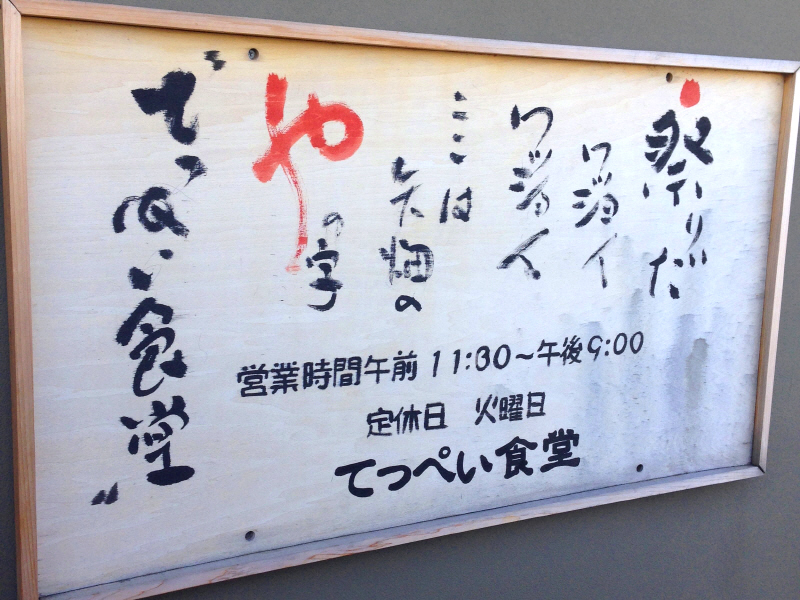 祭りだ
ワショイ
ワショイ
ここは
矢畑の
やの字
〝てっぺい食堂〟
営業時間午前11:30～午後9:00
定休日 火曜日
てっぺい食堂